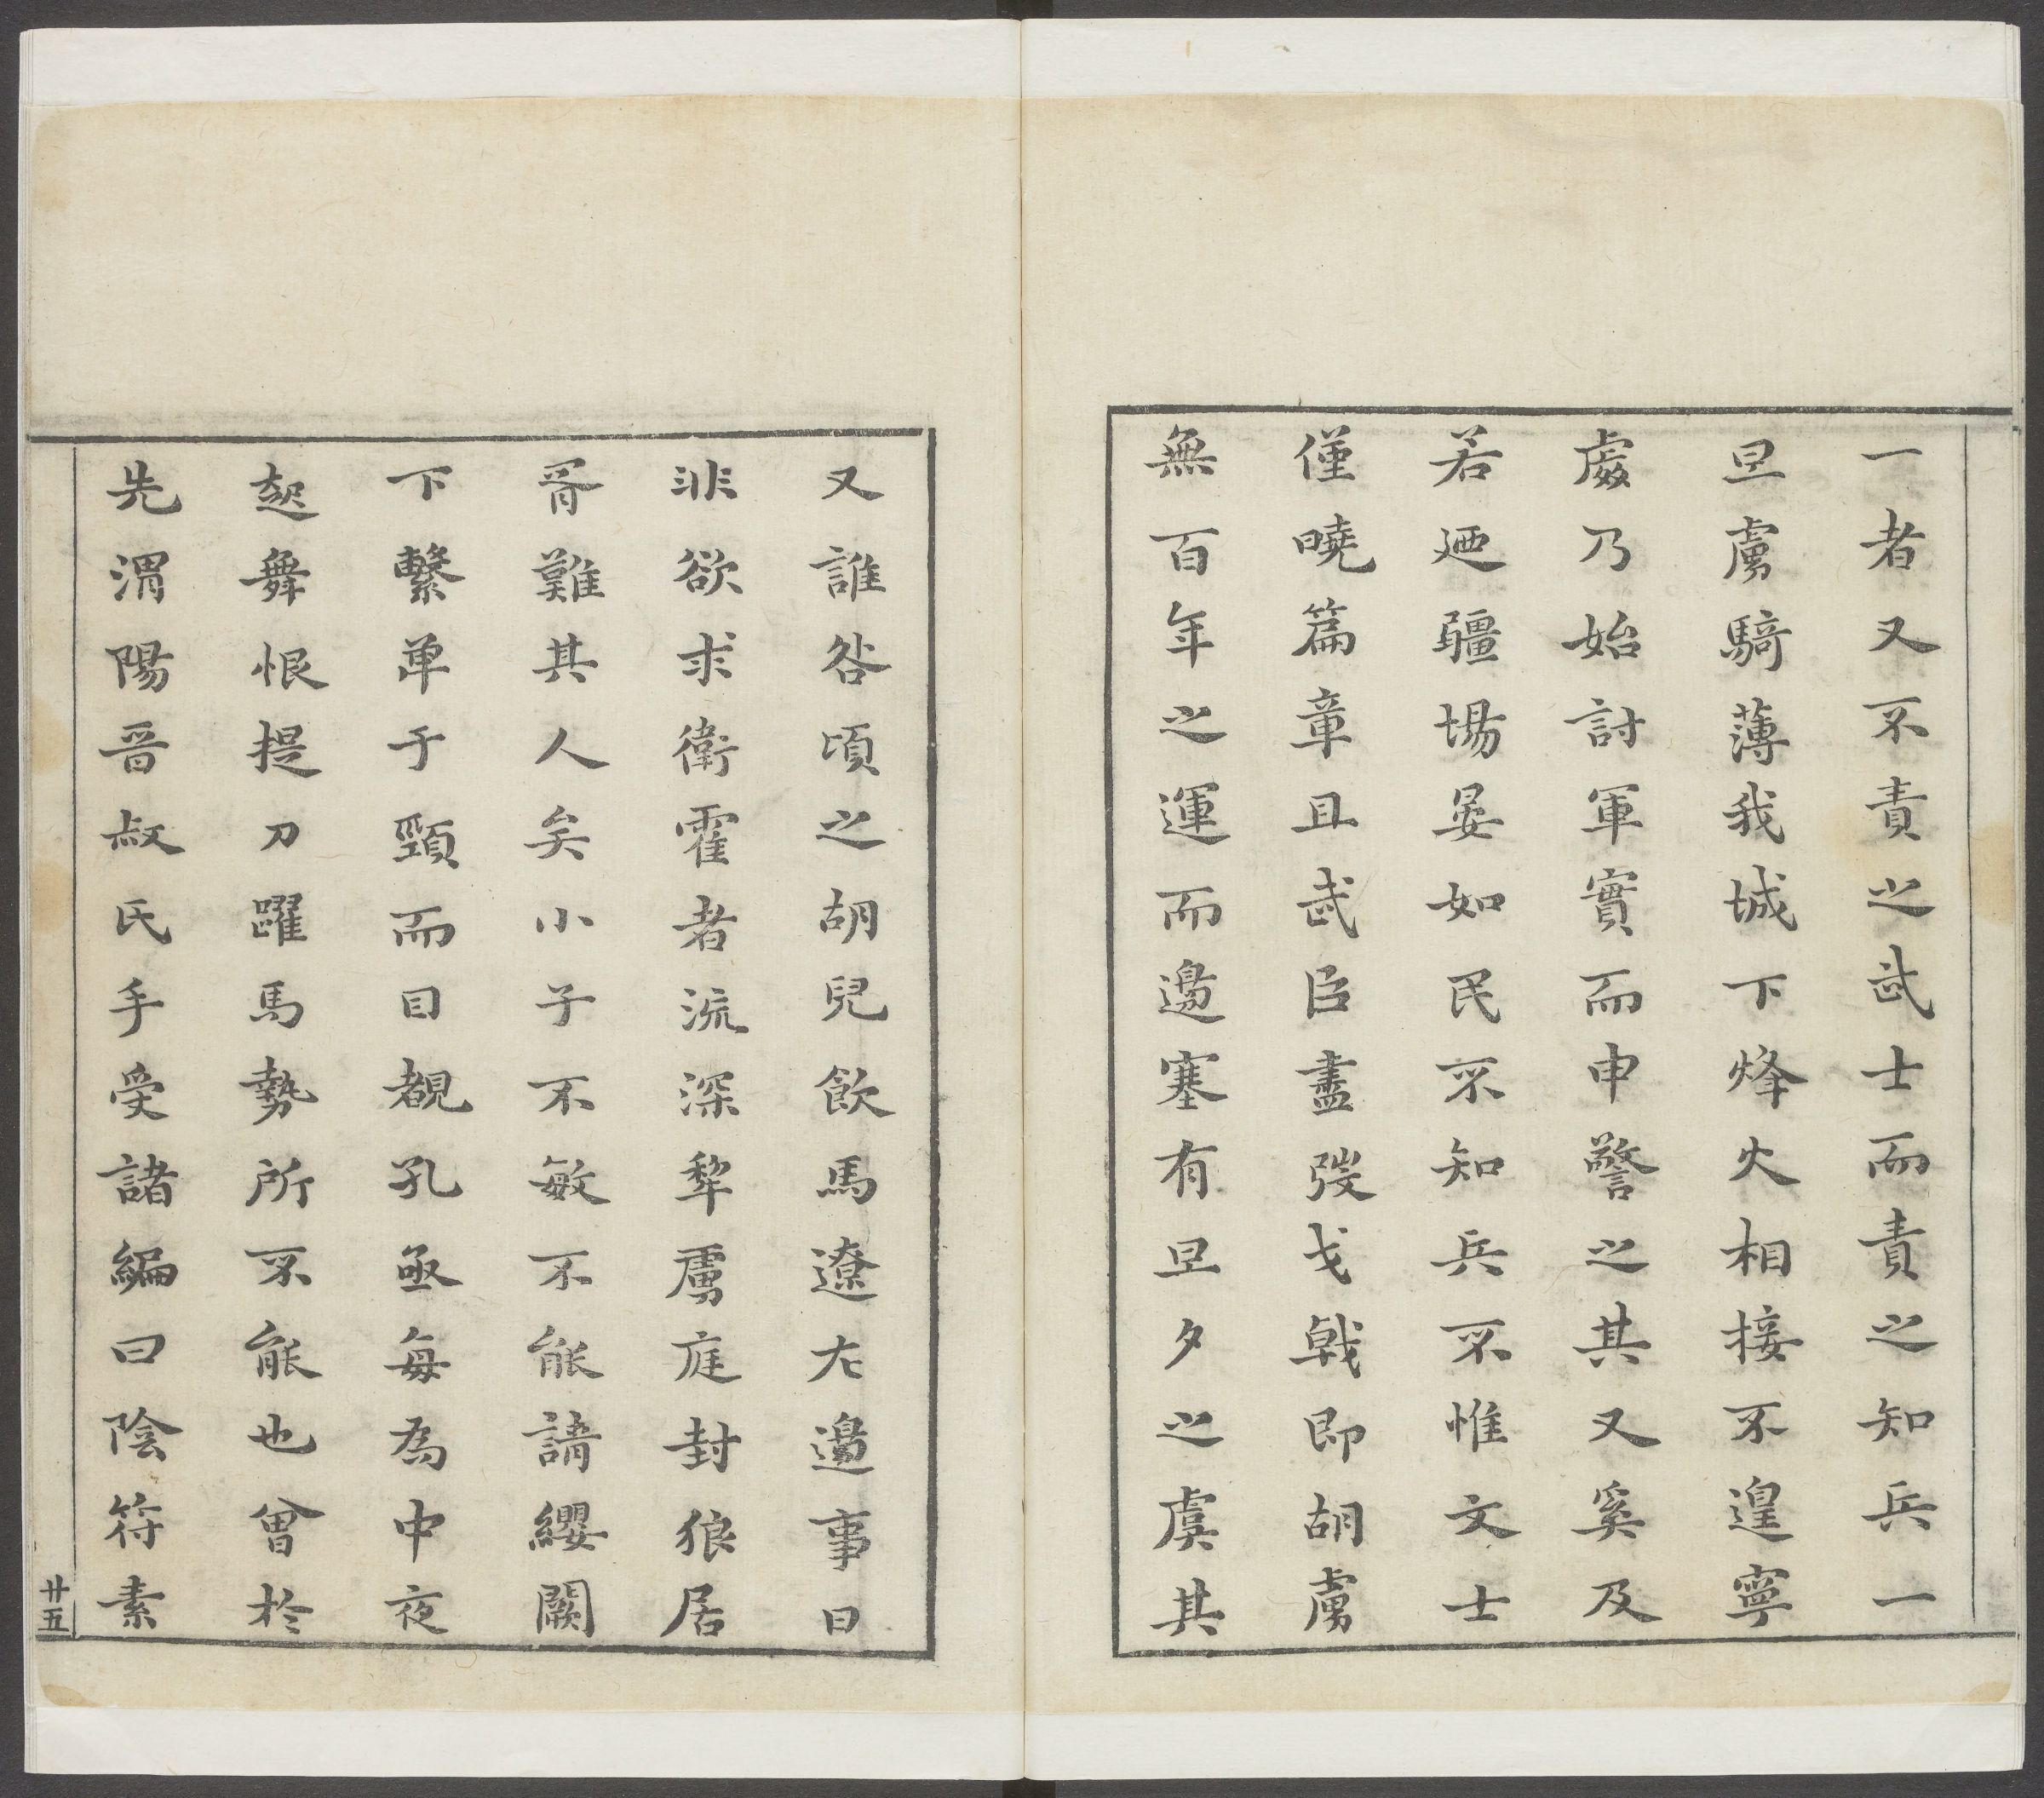 一者又不責之武士而責之知兵一
旦虜騎薄我城下烽火相接不遑寧
處乃始討軍實而申警之其又奚及
若廼疆場晏如民不知兵不惟文士
僅曉篇章且武臣盡弢戈戟即胡虜
無百年之運而邊塞有旦夕之虞其
又誰咎頃之胡兒飲馬遼左邊事日
非欲求衛霍者流深犂虜庭封狼居
胥難其人矣小子不敏不能請纓闕
下繫单于頸而目覩孔亟每為中夜
起舞恨提刀躍馬勢所不能也曾於
先渭陽晉叔氏手受諸編曰陰符素
廿五